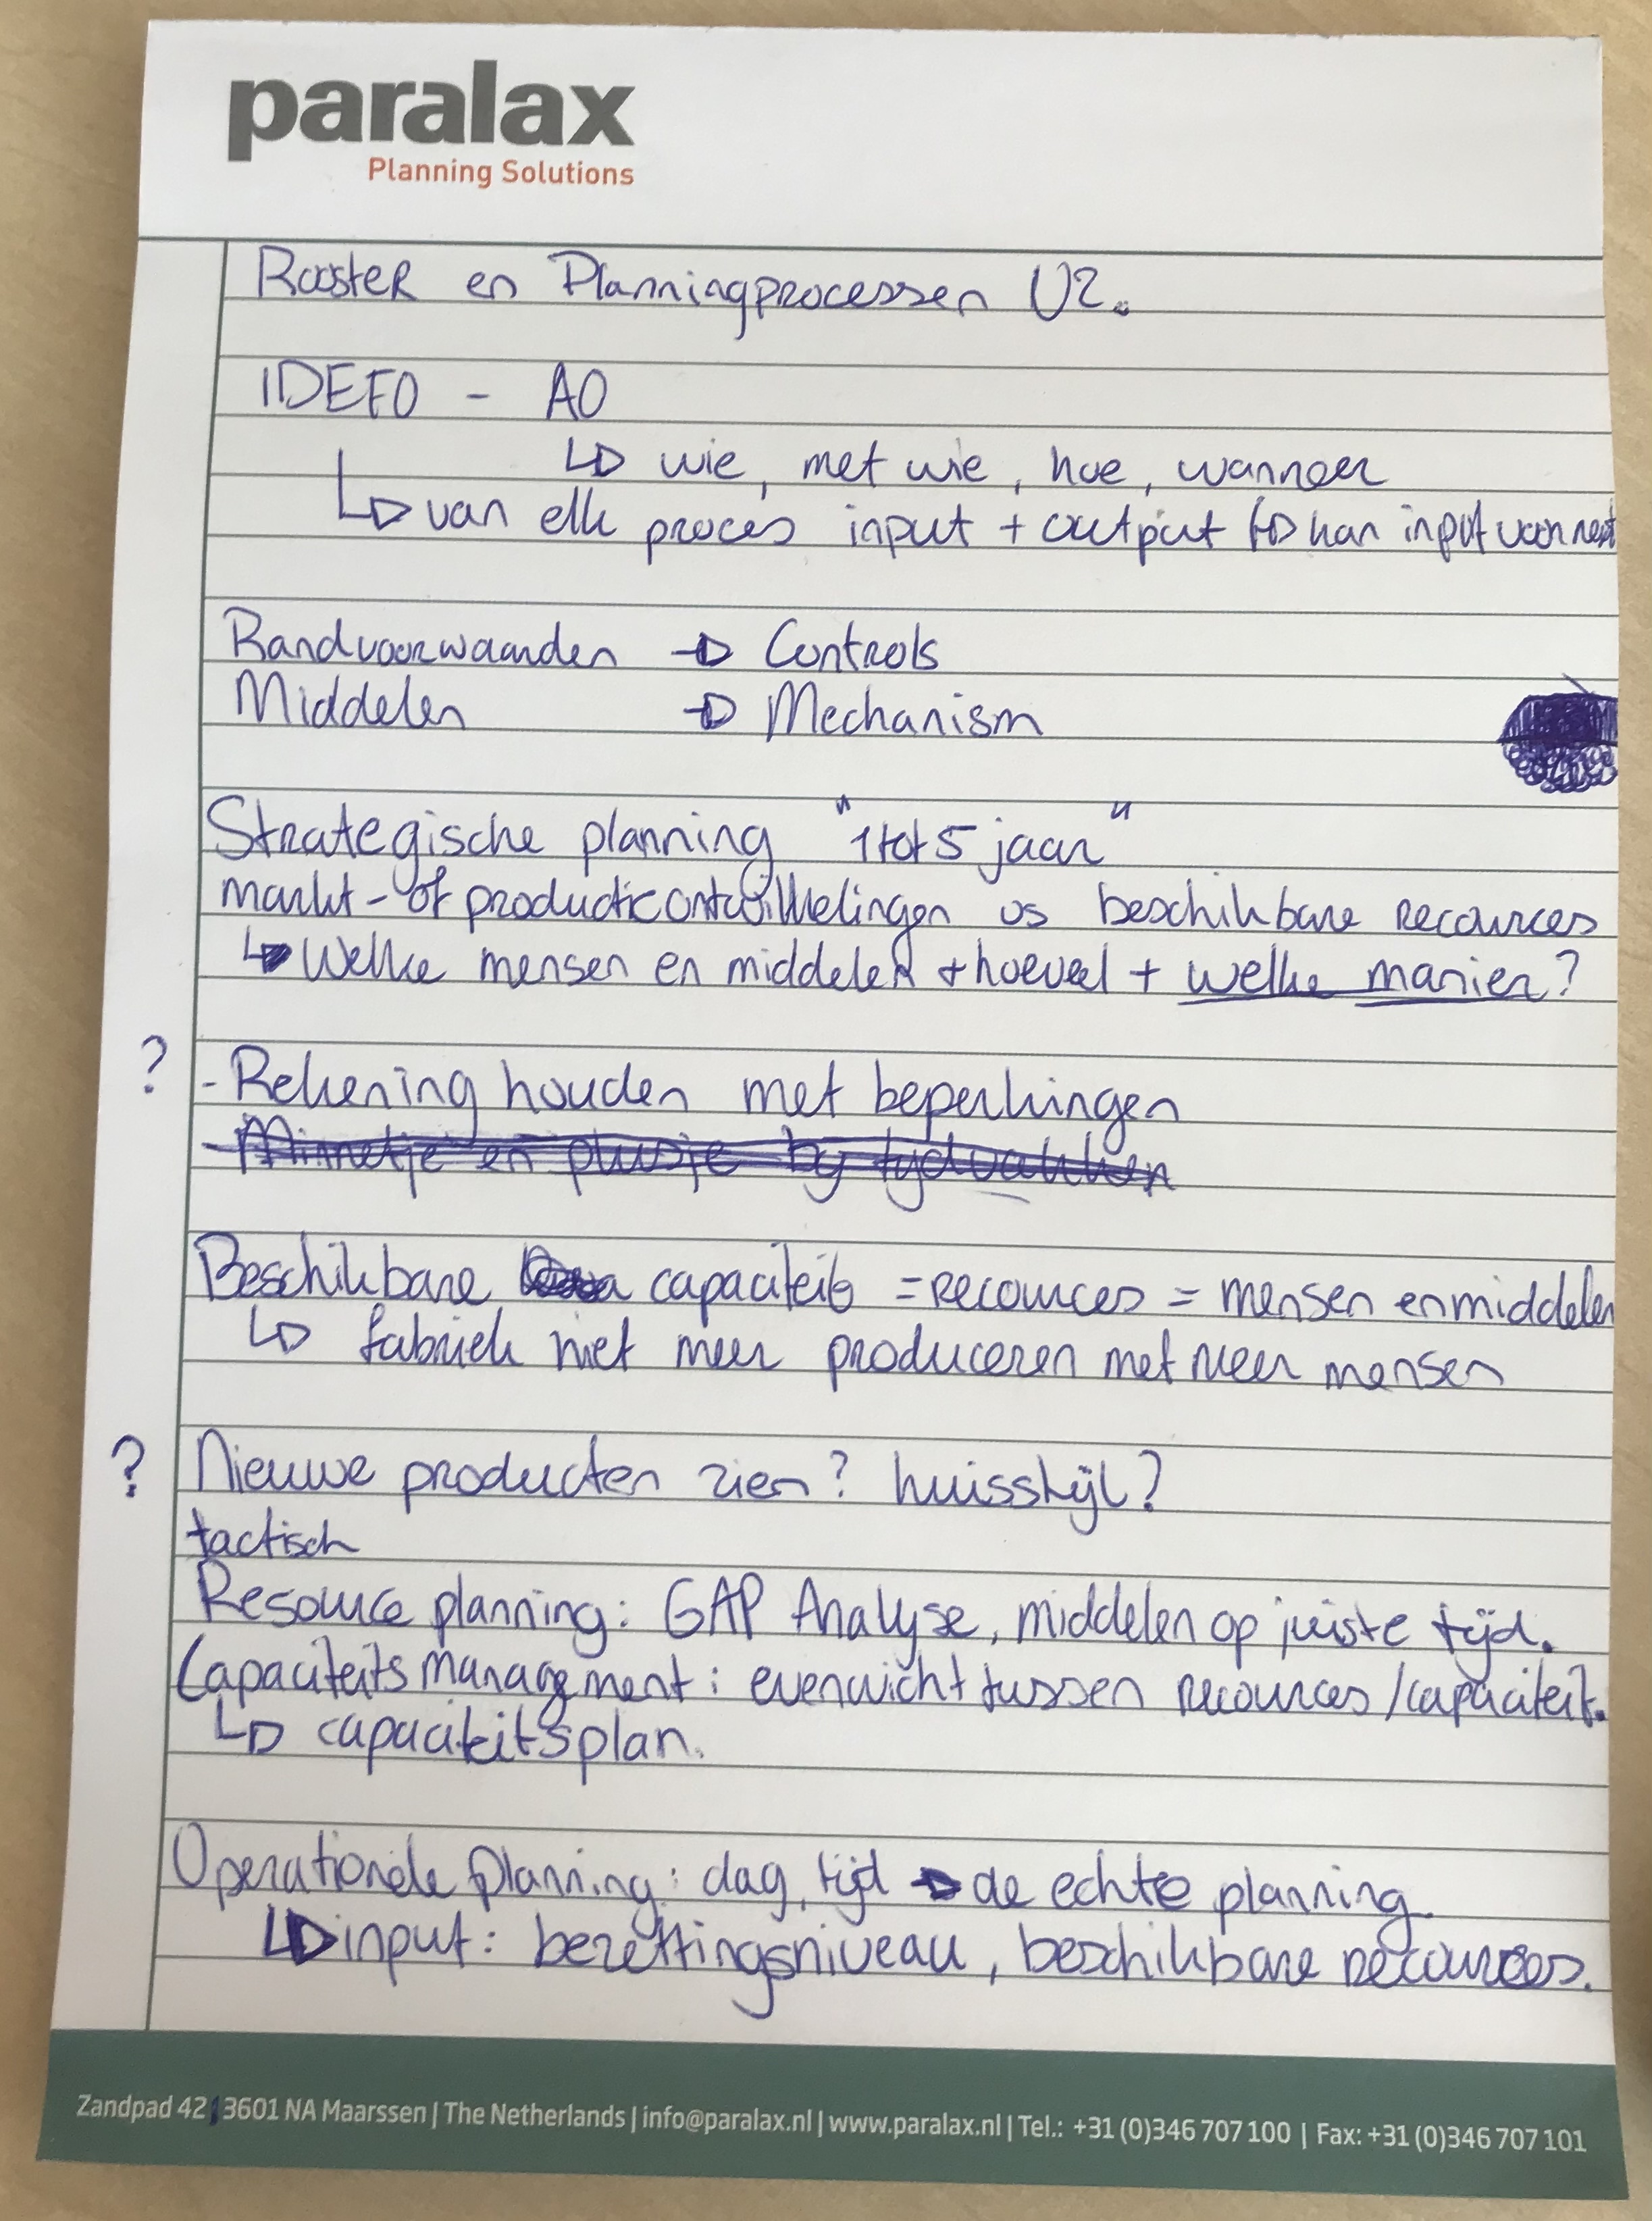 paralax
Planning Solutions
Rooster en Planningprocessen V2.
IDEF0 - A0
↳ wie, met wie, hoe, wanneer
↳ van elk proces input + output ↳ kan input voor next
Randvoorwaarden → Controls
Middelen → Mechanism
Strategische planning "1 tot 5 jaar"
markt- of productieontwikkelingen vs beschikbare recources
↳ Welke mensen en middelen + hoeveel + welke manier?
? - Rekening houden met beperkingen
- Minnetje en plusje by tydvakken
Beschikbare capaciteit = recources = mensen en middelen
↳ fabriek niet meer produceren met meer mensen
? Nieuwe producten zien? huisstijl?
tactisch
Resource planning: GAP Analyse, middelen op juiste tijd.
Capaciteitsmanagement: evenwicht tussen recources/capaciteit.
↳ capaciteitsplan.
Operationele planning: dag, tijd → de echte planning.
↳ input: bezettingsniveau, beschikbare recources.
Zandpad 42 | 3601 NA Maarssen | The Netherlands | info@paralax.nl | www.paralax.nl | Tel.: +31 (0)346 707 100 | Fax: +31 (0)346 707 101